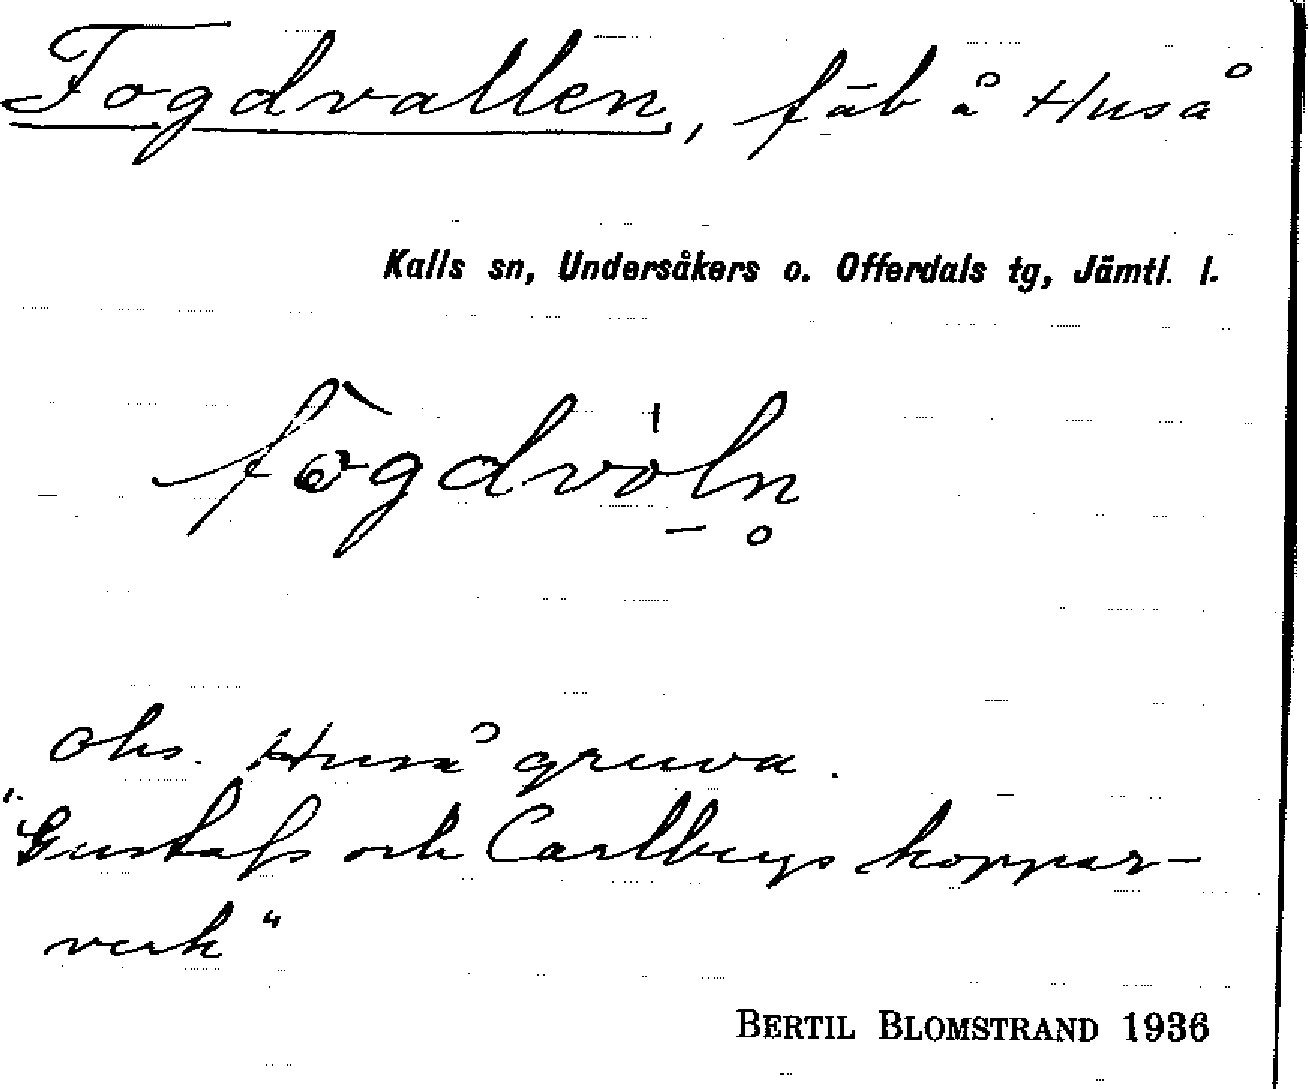 Fogdvallen, fäb å Huså
Kalls sn, Undersåkers o. Offerdals tg, Jämtl. l.
fògdvo̠ˈln̥
obs. Huså gruva.
"Gustafs och Carlbergs koppar-
verk"
BERTIL BLOMSTRAND 1936